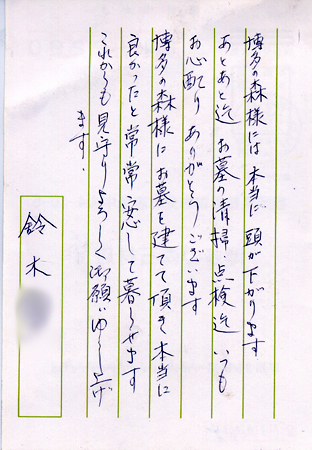 博多の森様には 本当に 頭が下がります
あとあと迄 お墓の清掃・点検迄 いつも
お心配り ありがとうございます
博多の森様に お墓を建てて頂き 本当に
良かったと 常常 安心して暮らせます
これからも 見守り よろしく御願い申し上げ
ます.
鈴木